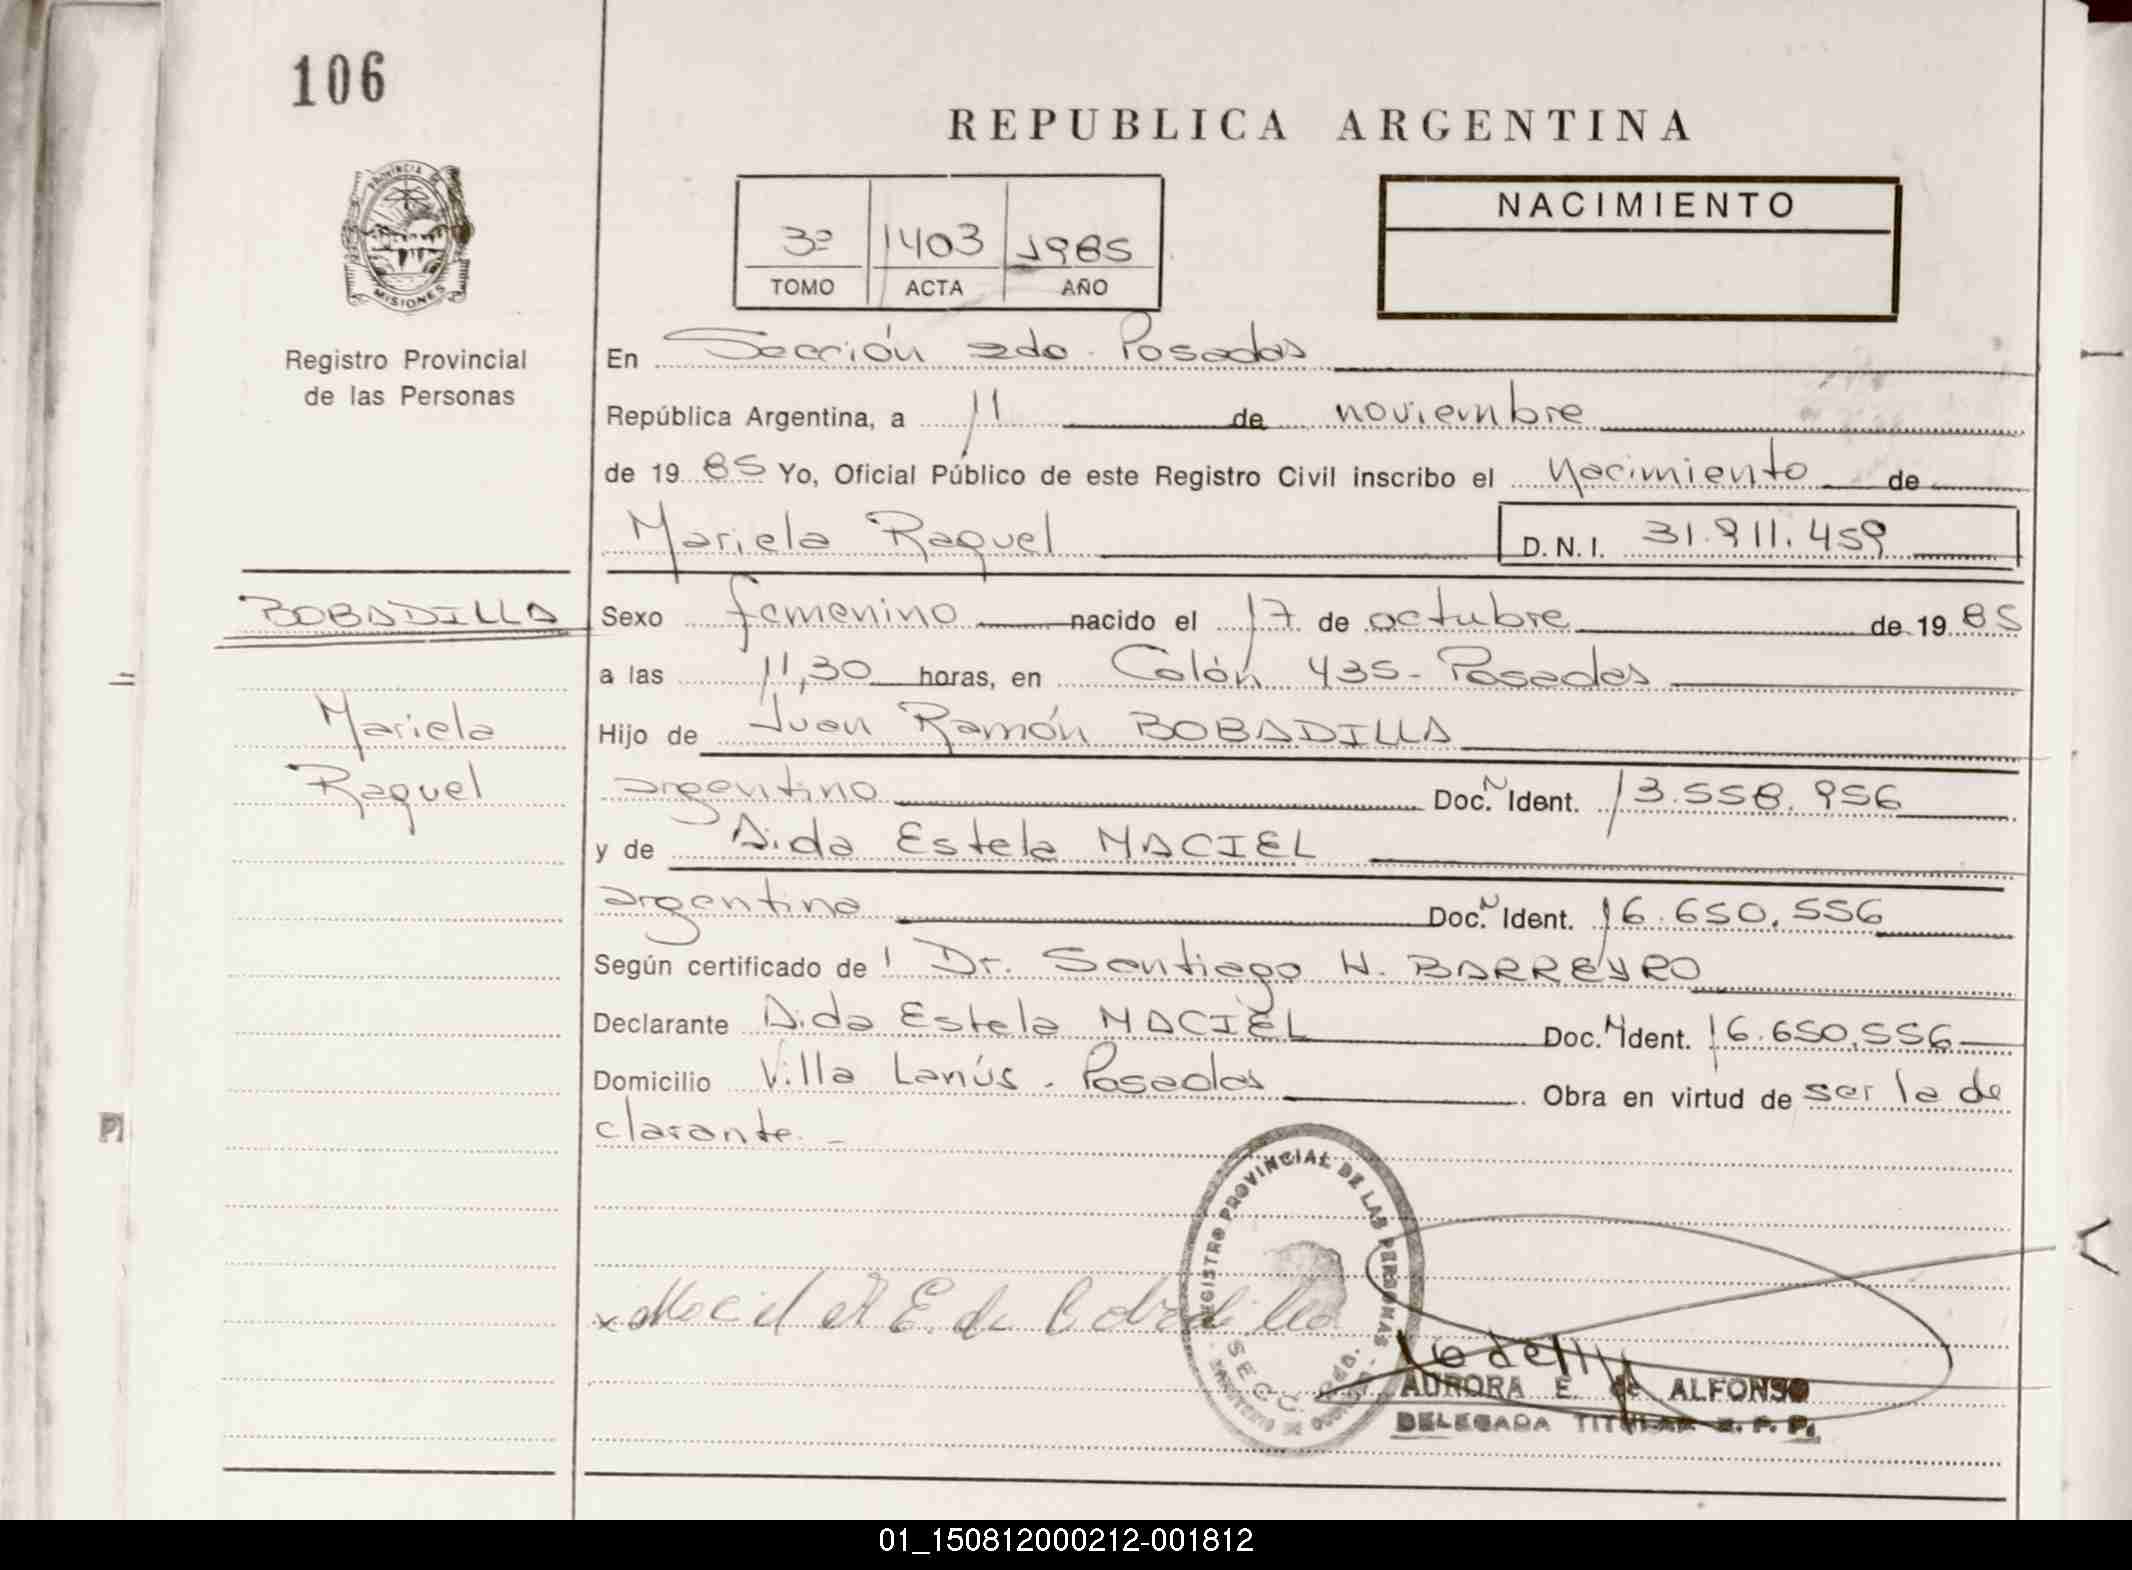 106
REPUBLICA ARGENTINA
PROVINCIA DE
MISIONES
NACIMIENTO
3º 1403 1985
TOMO ACTA AÑO
Registro Provincial
de las Personas
En Sección 2do. Posadas
República Argentina, a 11 de noviembre
de 19 85 Yo, Oficial Público de este Registro Civil inscribo el Nacimiento de
Mariela Raquel D.N.I. 31.911.459
BOBADILLA
Mariela
Raquel
Sexo femenino nacido el 17 de octubre de 19 85
a las 11,30 horas, en Colón 435 - Posadas
Hijo de Juan Ramón BOBADILLA
argentino Doc. N Ident. 13.558.956
y de Aida Estela MACIEL
argentina Doc. N Ident. 16.650.556
Según certificado de l Dr. Santiago H. BARREYRO
Declarante Aida Estela MACIEL Doc. N Ident. 16.650.556
Domicilio Villa Lanús - Posadas Obra en virtud de ser la de
clarante. -
REGISTRO PROVINCIAL DE LAS PERSONAS
SECC. 2da.
x Maciel A E. de Bobadilla
AURORA E. de ALFONSO
DELEGADA TITULAR R. P. P.
01_150812000212-001812